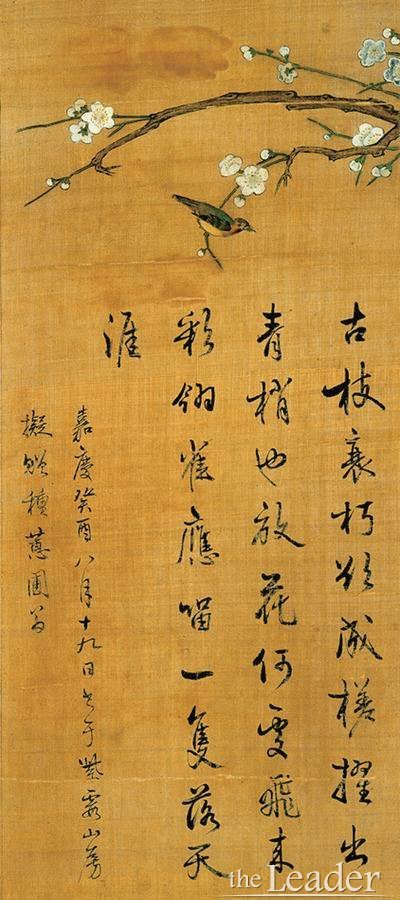 古枝衰朽欲成槎擢出
青梢也放花何處飛來
彩翎雀應留一隻落天
涯
嘉慶癸酉八月十九日書于紫霞山房
擬贈種蕙圃翁
the Leader